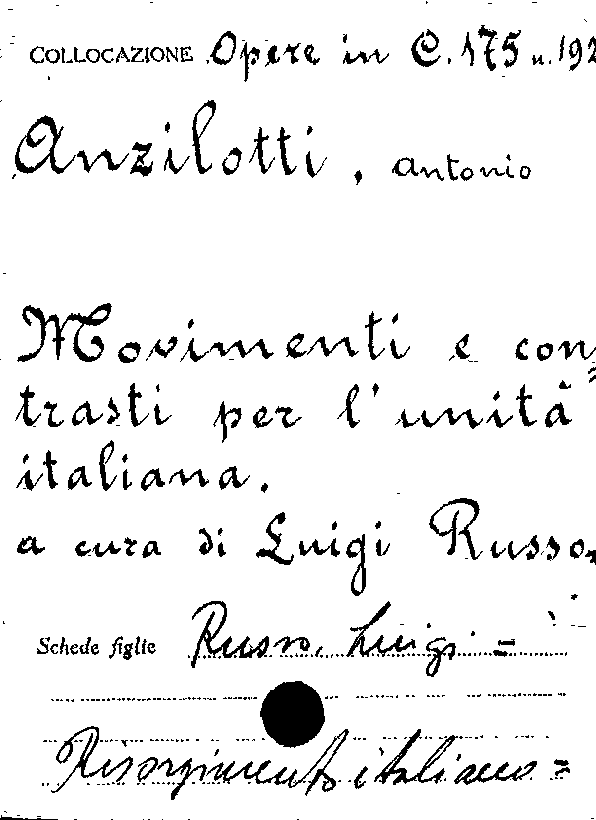 COLLOCAZIONE Opere in C. 175 n. 192
Anzilotti, Antonio
Movimenti e con=
trasti per l'unità
italiana.
a cura di Luigi Russo.
Schede figlie Russo, Luigi =
Risorgimento italiano =